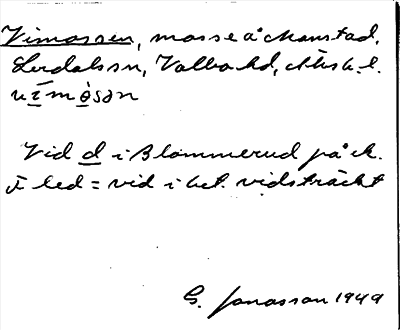 Vimossen, mosse å Manstad,
Lerdals sn, Valbo hd, Älvsb. l.
vìmòsən
Vid d i Blommerud på ek.
I led = vid i bet. vidsträckt
G. Jonasson 1949